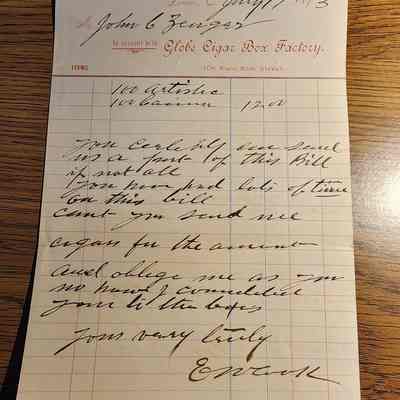 July 17 3
John C Zenger
In account with Globe Cigar Box Factory.
TERMS
100 Artistic
100 12.00
You certainly can send
us a part of this Bill
if not all
You have had lots of time
on this bill
cant you send me
cigars for the amount
And oblige me as you
no how I
you the
Yours very truly
E W Cook